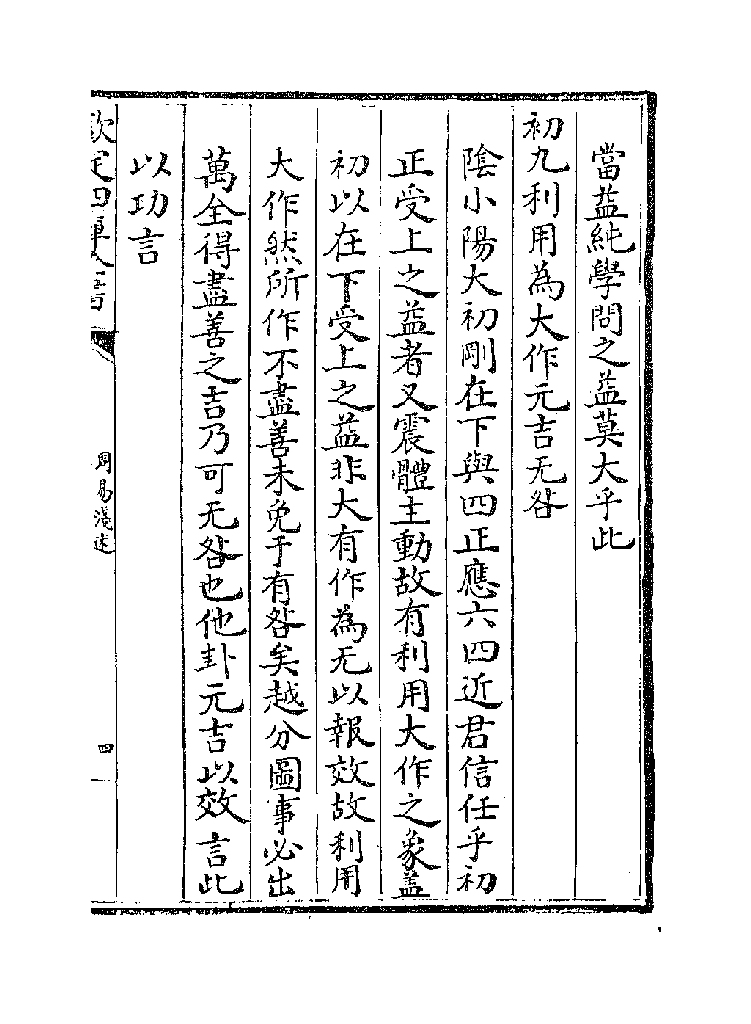 當益純學問之益莫大乎此
初九利用為大作元吉无咎
陰小陽大初剛在下與四正應六四近君信任乎初
正受上之益者又震體主動故有利用大作之象蓋
初以在下受上之益非大有作為无以報效故利用
大作然所作不盡善未免于有咎矣越分圖事必出
萬全得盡善之吉乃可无咎也他卦元吉以效言此
以功言
欽定四庫全書
周易淺述
四